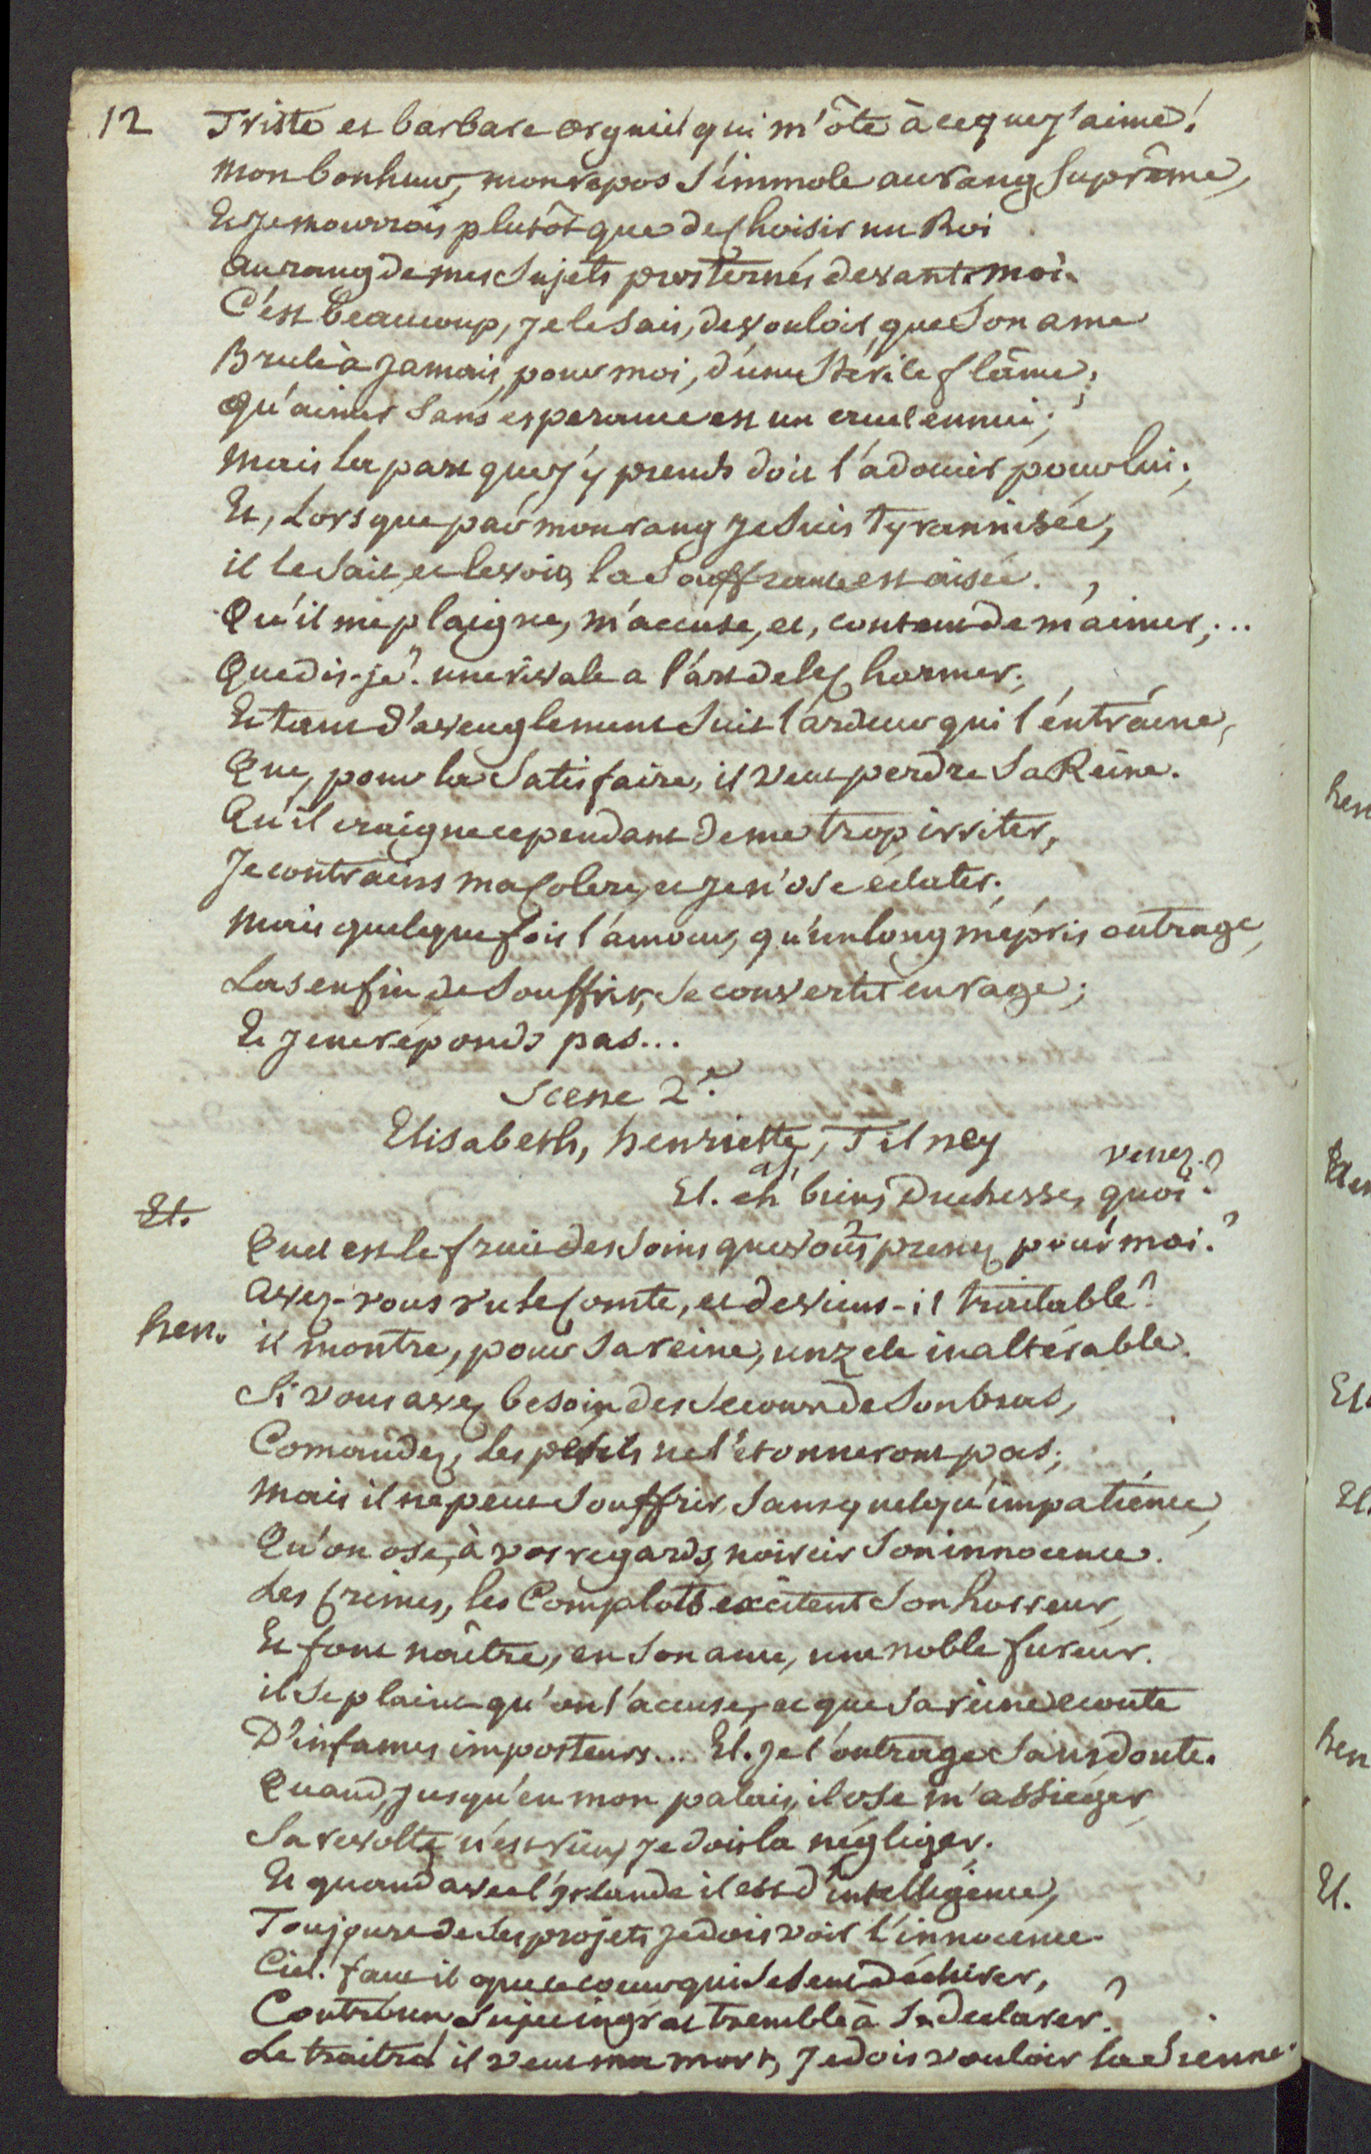 12 Triste et barbare orgueil qui m'ôte à ce que j'aime!
Mon bonheur, mon repos s'immole au rang suprême,
Et je mourrois plutôt que de choisir un Roi
Au rang de mes sujets prosternés devant moi.
C'est beaucoup, je le sais, de vouloir, que son ame
Brule à jamais, pour moi, d'une stérile flâme;
Qu'aimer sans esperance est un cruel ennui;
Mais la part que j'y prends doit l'adoucir pour lui;
Et, Lorsque par mon rang je suis tyrannisée,
il le sait, et le voit, la souffrance est aisée.
Qu'il me plaigne, m'accuse, et, content de m'aimer,...
Que dis-je? une rivale a l'art de le charmer;
Et tant d'aveuglement suit l'ardeur qui l'entraine,
Que, pour la satisfaire, il veut perdre sa Reine.
Qu'il craigne cependant de me trop irriter,
Je contrains ma colere, et je n'ose eclater;
Mais quelquefois l'amour, qu'un long mépris outrage,
Las enfin de souffrir, se convertit en rage;
Et je ne réponds pas...
Scene 2e.
Elisabeth, henriette, Tilney
venez.
El. eh bien, Duchesse, quoi?
El.
Quel est le fruit des soins que vous prenez pour moi?
avez-vous vu le Comte, et devient-il traitable?
hen. il montre, pour sa reine, un zele inaltérable.
Si vous avez besoin des secours de son bras,
Comandez, les périls ne l'étonneront pas;
Mais il ne peut souffrir, sans quelqu'impatience,
Qu'on ose, à vos regards, noircir son innocence.
Les Crimes, les Complots excitent son horreur,
Et font naître, en son ame, une noble fureur.
il se plaint qu'on l'accuse, et que sa reine ecoute
D'infames imposteurs... El. Je l'outrage sans doute.
Quand, jusqu'en mon palais, il ose m'assieger
Sa revolte n'est rien, je dois la négliger.
Et quand avec l'Irlande il est d'intelligence,
Toujours de ses projets je dois voir l'innocence.
Ciel! faut il que ce coeur qui se sent déchirer,
Contre un sujet ingrat tremble à se declarer?
Le traitre! il veut ma mort, je dois vouloir la sienne.
hen
El
El.
hen
El.